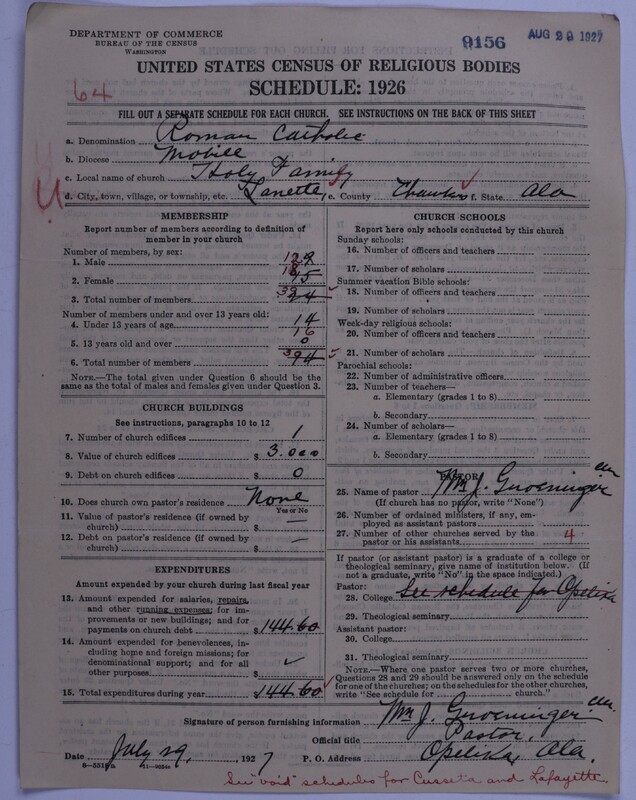 DEPARTMENT OF COMMERCE
BUREAU OF THE CENSUS
WASHINGTON
9156
AUG 29 1927
UNITED STATES CENSUS OF RELIGIOUS BODIES
SCHEDULE: 1926
64
FILL OUT A SEPARATE SCHEDULE FOR EACH CHURCH. SEE INSTRUCTIONS ON THE BACK OF THIS SHEET
a. Denomination Roman Catholic
b. Diocese Mobile
c. Local name of church Holy Family
d. City, town, village, or township, etc. Lanette, e. County Chambers f. State Ala
MEMBERSHIP
Report number of members according to definition of
member in your church
Number of members, by sex:
1. Male
2. Female
3. Total number of members
Number of members under and over 13 years old:
4. Under 13 years of age 14
5. 13 years old and over
6. Total number of members
NOTE.—The total given under Question 6 should be
same as the total of males and females given under Question 3.
CHURCH BUILDINGS
See instructions, paragraphs 10 to 12
7. Number of church edifices 1
8. Value of church edifices $ 3.000
9. Debt on church edifices $ 0
10. Does church own pastor's residence None
Yes or No
11. Value of pastor's residence (if owned by
church) $ —
12. Debt on pastor's residence (if owned by
church) $ —
EXPENDITURES
Amount expended by your church during last fiscal year
13. Amount expended for salaries, repairs,
and other running expenses; for im-
provements or new buildings; and for
payments on church debt $ 144.60
14. Amount expended for benevolences, in-
cluding home and foreign missions; for
denominational support; and for all
other purposes $ ✓
15. Total expenditures during year $ 144.60
CHURCH SCHOOLS
Report here only schools conducted by this church
Sunday schools:
16. Number of officers and teachers
17. Number of scholars
Summer vacation Bible schools:
18. Number of officers and teachers
19. Number of scholars
Week-day religious schools:
20. Number of officers and teachers
21. Number of scholars
Parochial schools:
22. Number of administrative officers
23. Number of teachers—
a. Elementary (grades 1 to 8)
b. Secondary
24. Number of scholars—
a. Elementary (grades 1 to 8)
b. Secondary
PASTOR
25. Name of pastor Wm J. Groeninger
(If church has no pastor, write "None")
26. Number of ordained ministers, if any, em-
ployed as assistant pastors
27. Number of other churches served by the
pastor or his assistants 4
If pastor (or assistant pastor) is a graduate of a college or
theological seminary, give name of institution below. (If
not a graduate, write "No" in the space indicated.)
Pastor:
28. College See schedule for Opelika
29. Theological seminary
Assistant pastor:
30. College
31. Theological seminary
NOTE.—Where one pastor serves two or more churches,
Questions 28 and 29 should be answered only on the schedule
for one of the churches; on the schedules for the other churches,
write "See schedule for church."
Signature of person furnishing information Wm J. Groeninger
Official title Pastor,
Date July 29, 1927 P. O. Address Opelika, Ala.
See "void" schedules for Cusseta and Lafayette